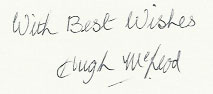 With Best Wishes
Hugh McLeod